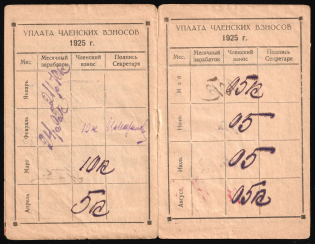 УПЛАТА ЧЛЕНСКИХ ВЗНОСОВ
1925 г.
Мес. Месячный заработок Членский взнос Подпись Секретаря
Январь
Февраль 10к
Март 10к
Апрель 5к
УПЛАТА ЧЛЕНСКИХ ВЗНОСОВ
1925 г.
Мес. Месячный заработок Членский взнос Подпись Секретаря
Май 05к
Июнь 05
Июль 05
Август 05к